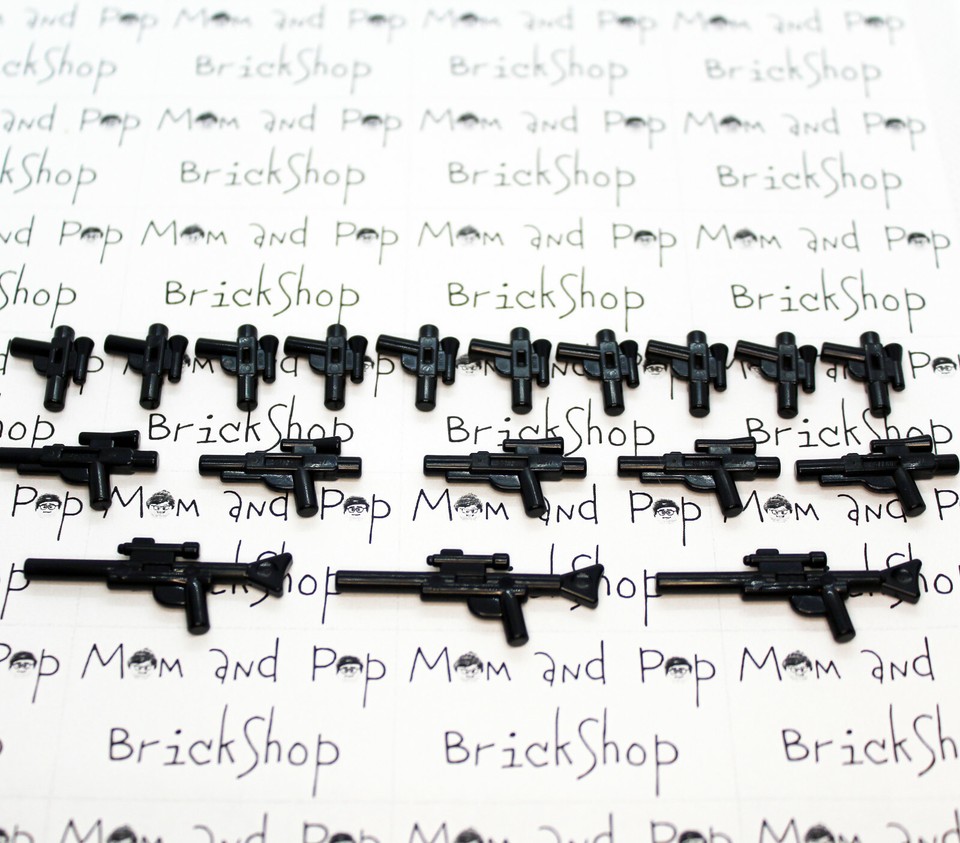 and Pop Mom and Pop Mom and Pop Mom and Pop
ckShop BrickShop BrickShop BrickShop
and Pop Mom and Pop Mom and Pop Mom and Pop
kShop BrickShop BrickShop BrickShop
nd Pop Mom and Pop Mom and Pop Mom and Pop
Shop BrickShop BrickShop BrickShop
hop BrickShop BrickShop BrickShop
Pop Mom and Pop Mom and Pop Mom and P
Shop Shop ckShop
Pop Mom and Pop Mom and Pop Mom and
BrickShop BrickShop BrickSh
Mom and Pop Mom and Pop Mom and